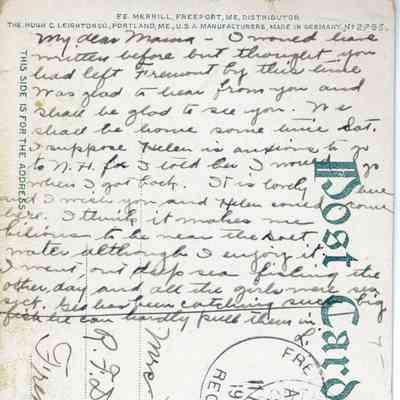 F.E. MERRILL, FREEPORT, ME, DISTRIBUTOR
THE HUGH C. LEIGHTON CO., PORTLAND, ME., U.S.A. MANUFACTURERS, MADE IN GERMANY, No 2785.
THIS SIDE IS FOR THE ADDRESS
Post Card
My dear Mama - I would have
written before but thought you
had left Fremont by this time
Was glad to hear from you and
shall be glad to see you. We
shall be home some time Sat.
I suppose Helen is anxious to go
to N.H. for I told her I would go
when I got back. It is lovely here
and I wish you and Helen could come
here. I think it makes me
bilious to be near the salt
water although I enjoy it.
I went out deep sea fishing the
other day and all the girls were sea
sick. Geo has been catching such big
fish he can hardly pull them in.
L.
Mrs
R.F.D
FRE
REC
19